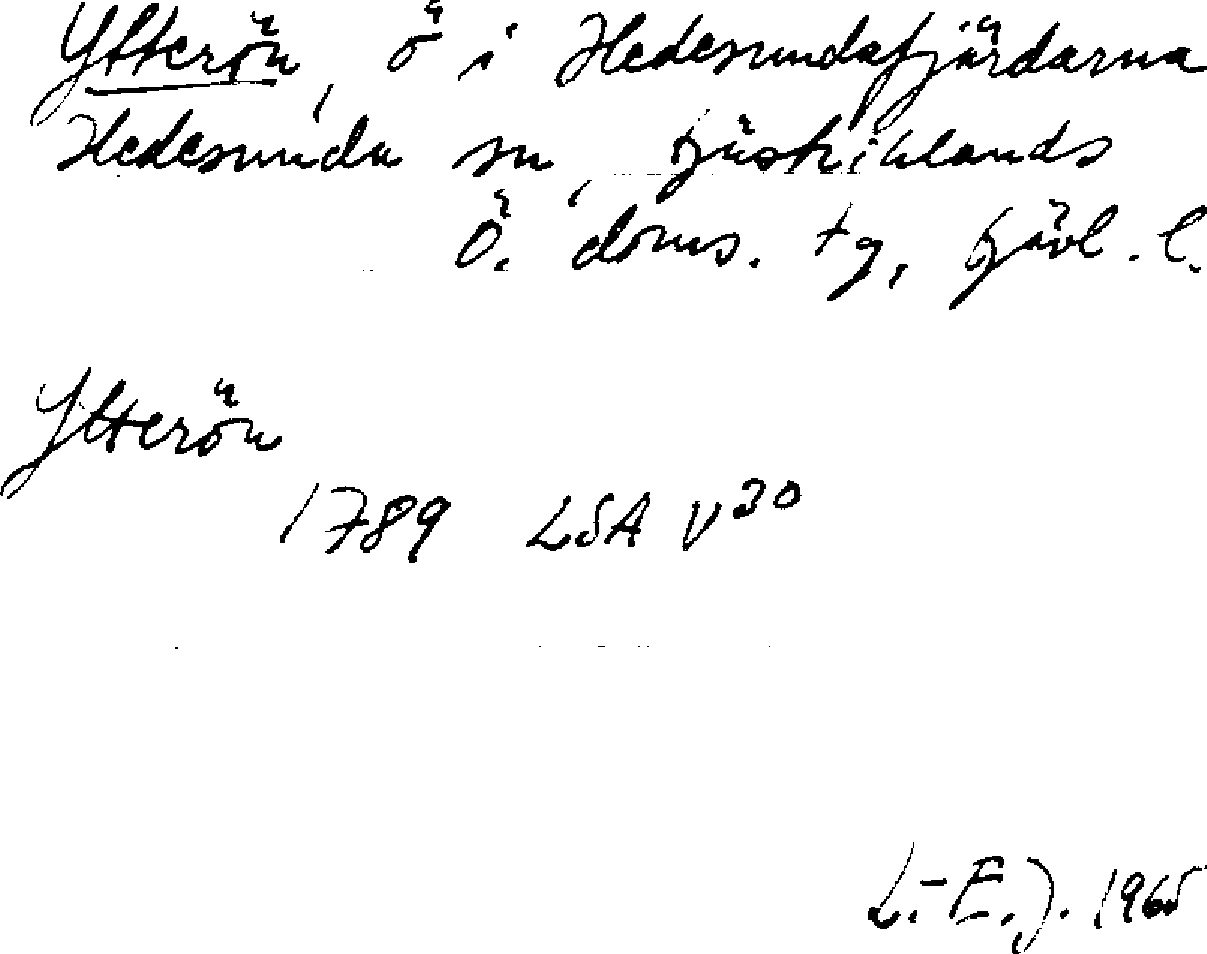 Ytterön, ö i Hedesundafjärdarna
Hedesunda sn, Gästriklands
Ö. doms. tg, Gävl. l.
Ytterön
1789 LSA V30
L.-E. J. 1965